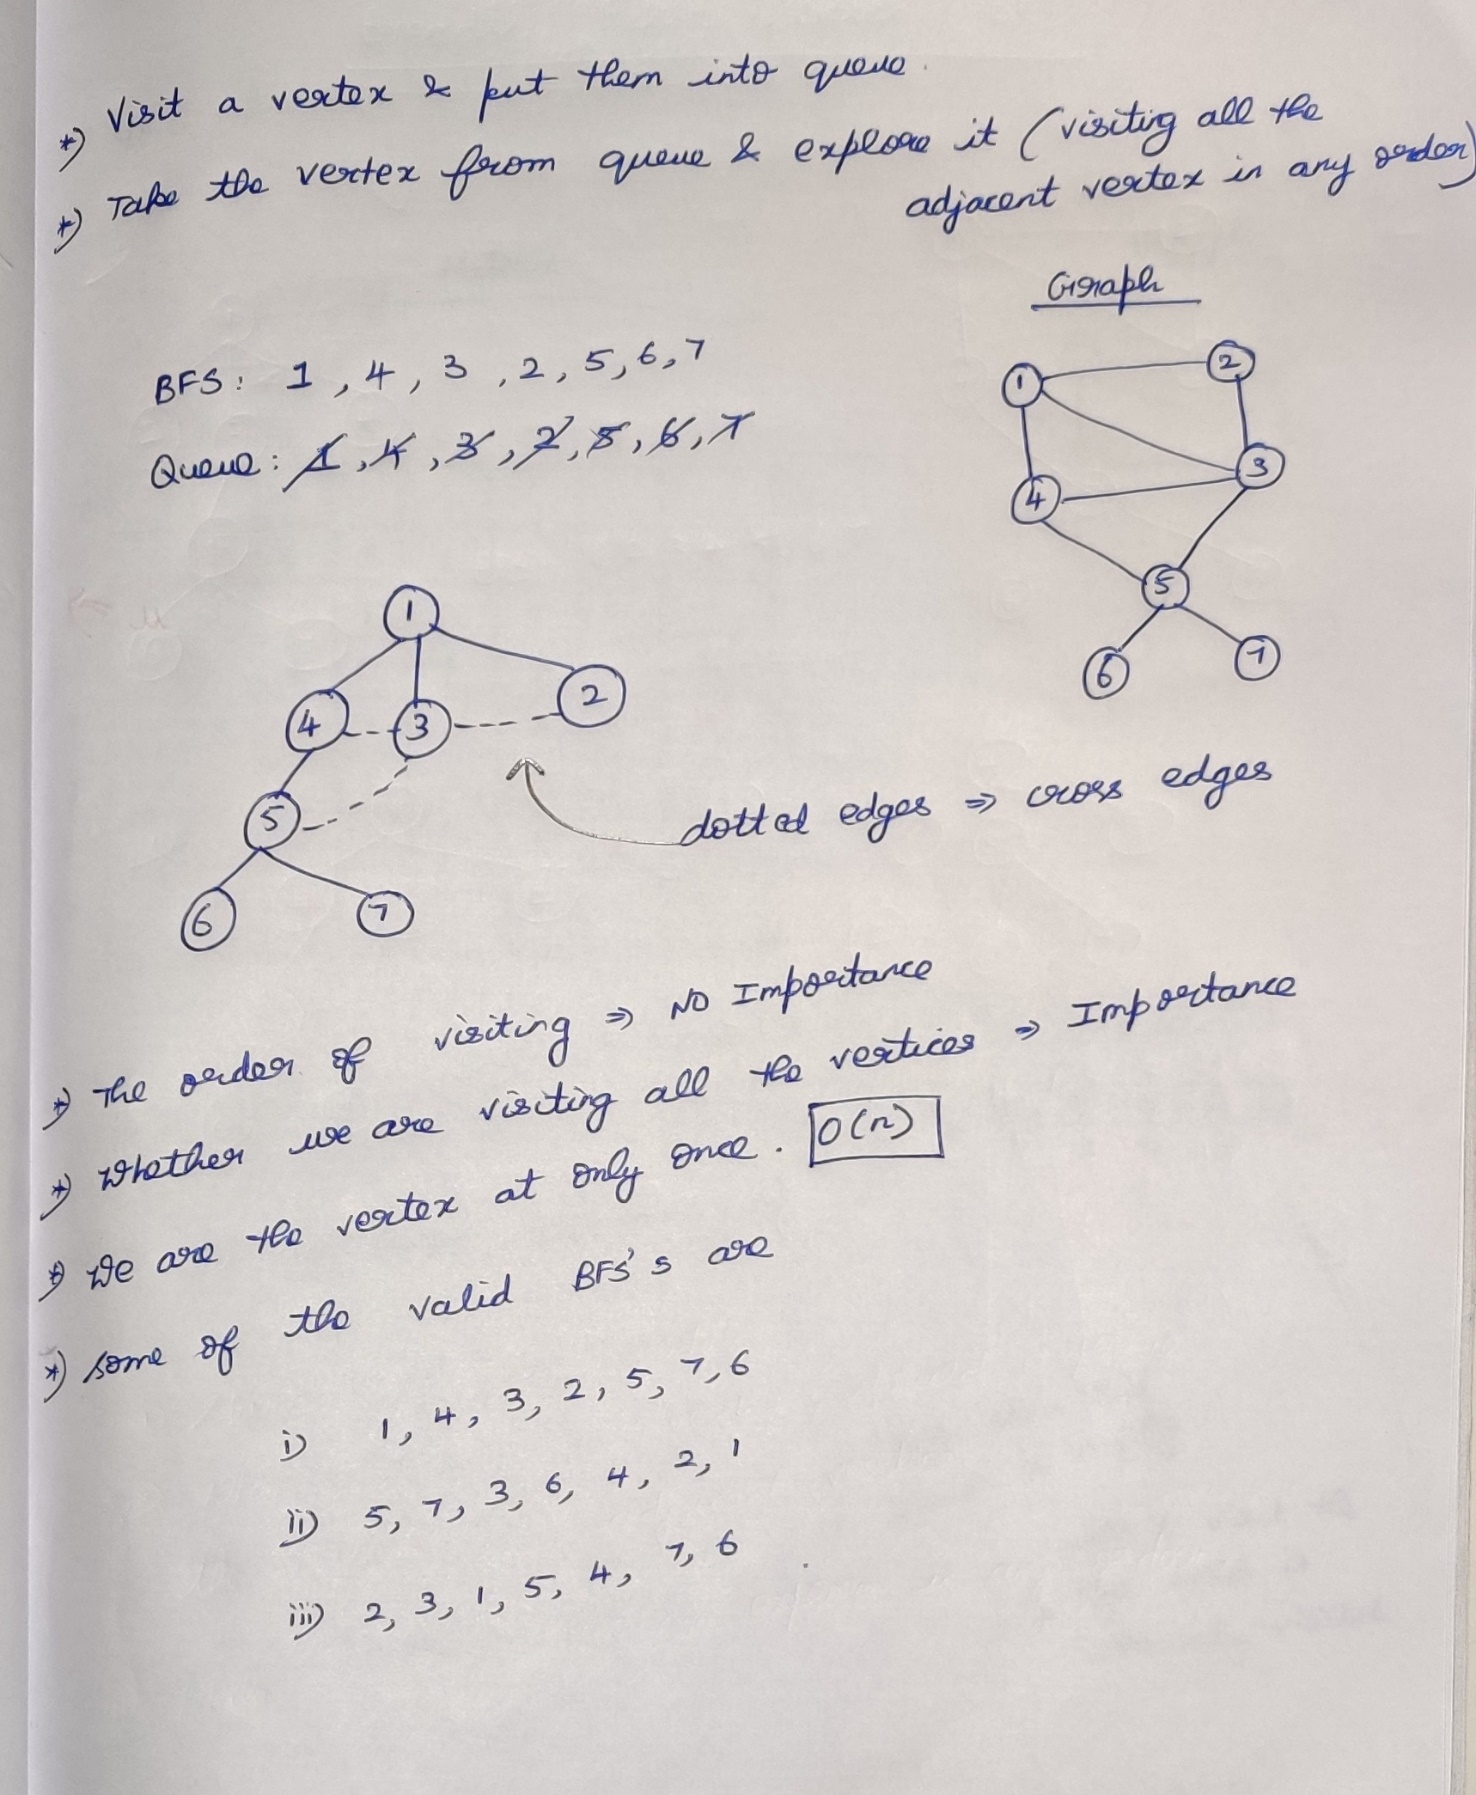 *) Visit a vertex & put them into queue.
*) Take the vertex from queue & explore it (visiting all the
adjacent vertex in any order)
Graph
BFS: 1, 4, 3, 2, 5, 6, 7
Queue: 1, 4, 3, 2, 5, 6, 7
1 2
3
4
5
6 7
1
4 3 2
5
6 7
dotted edges ⇒ cross edges
*) The order of visiting ⇒ NO Importance
*) Whether we are visiting all the vertices ⇒ Importance
*) We are the vertex at only once. O(n)
*) some of the valid BFS's are
i) 1, 4, 3, 2, 5, 7, 6
ii) 5, 7, 3, 6, 4, 2, 1
iii) 2, 3, 1, 5, 4, 7, 6